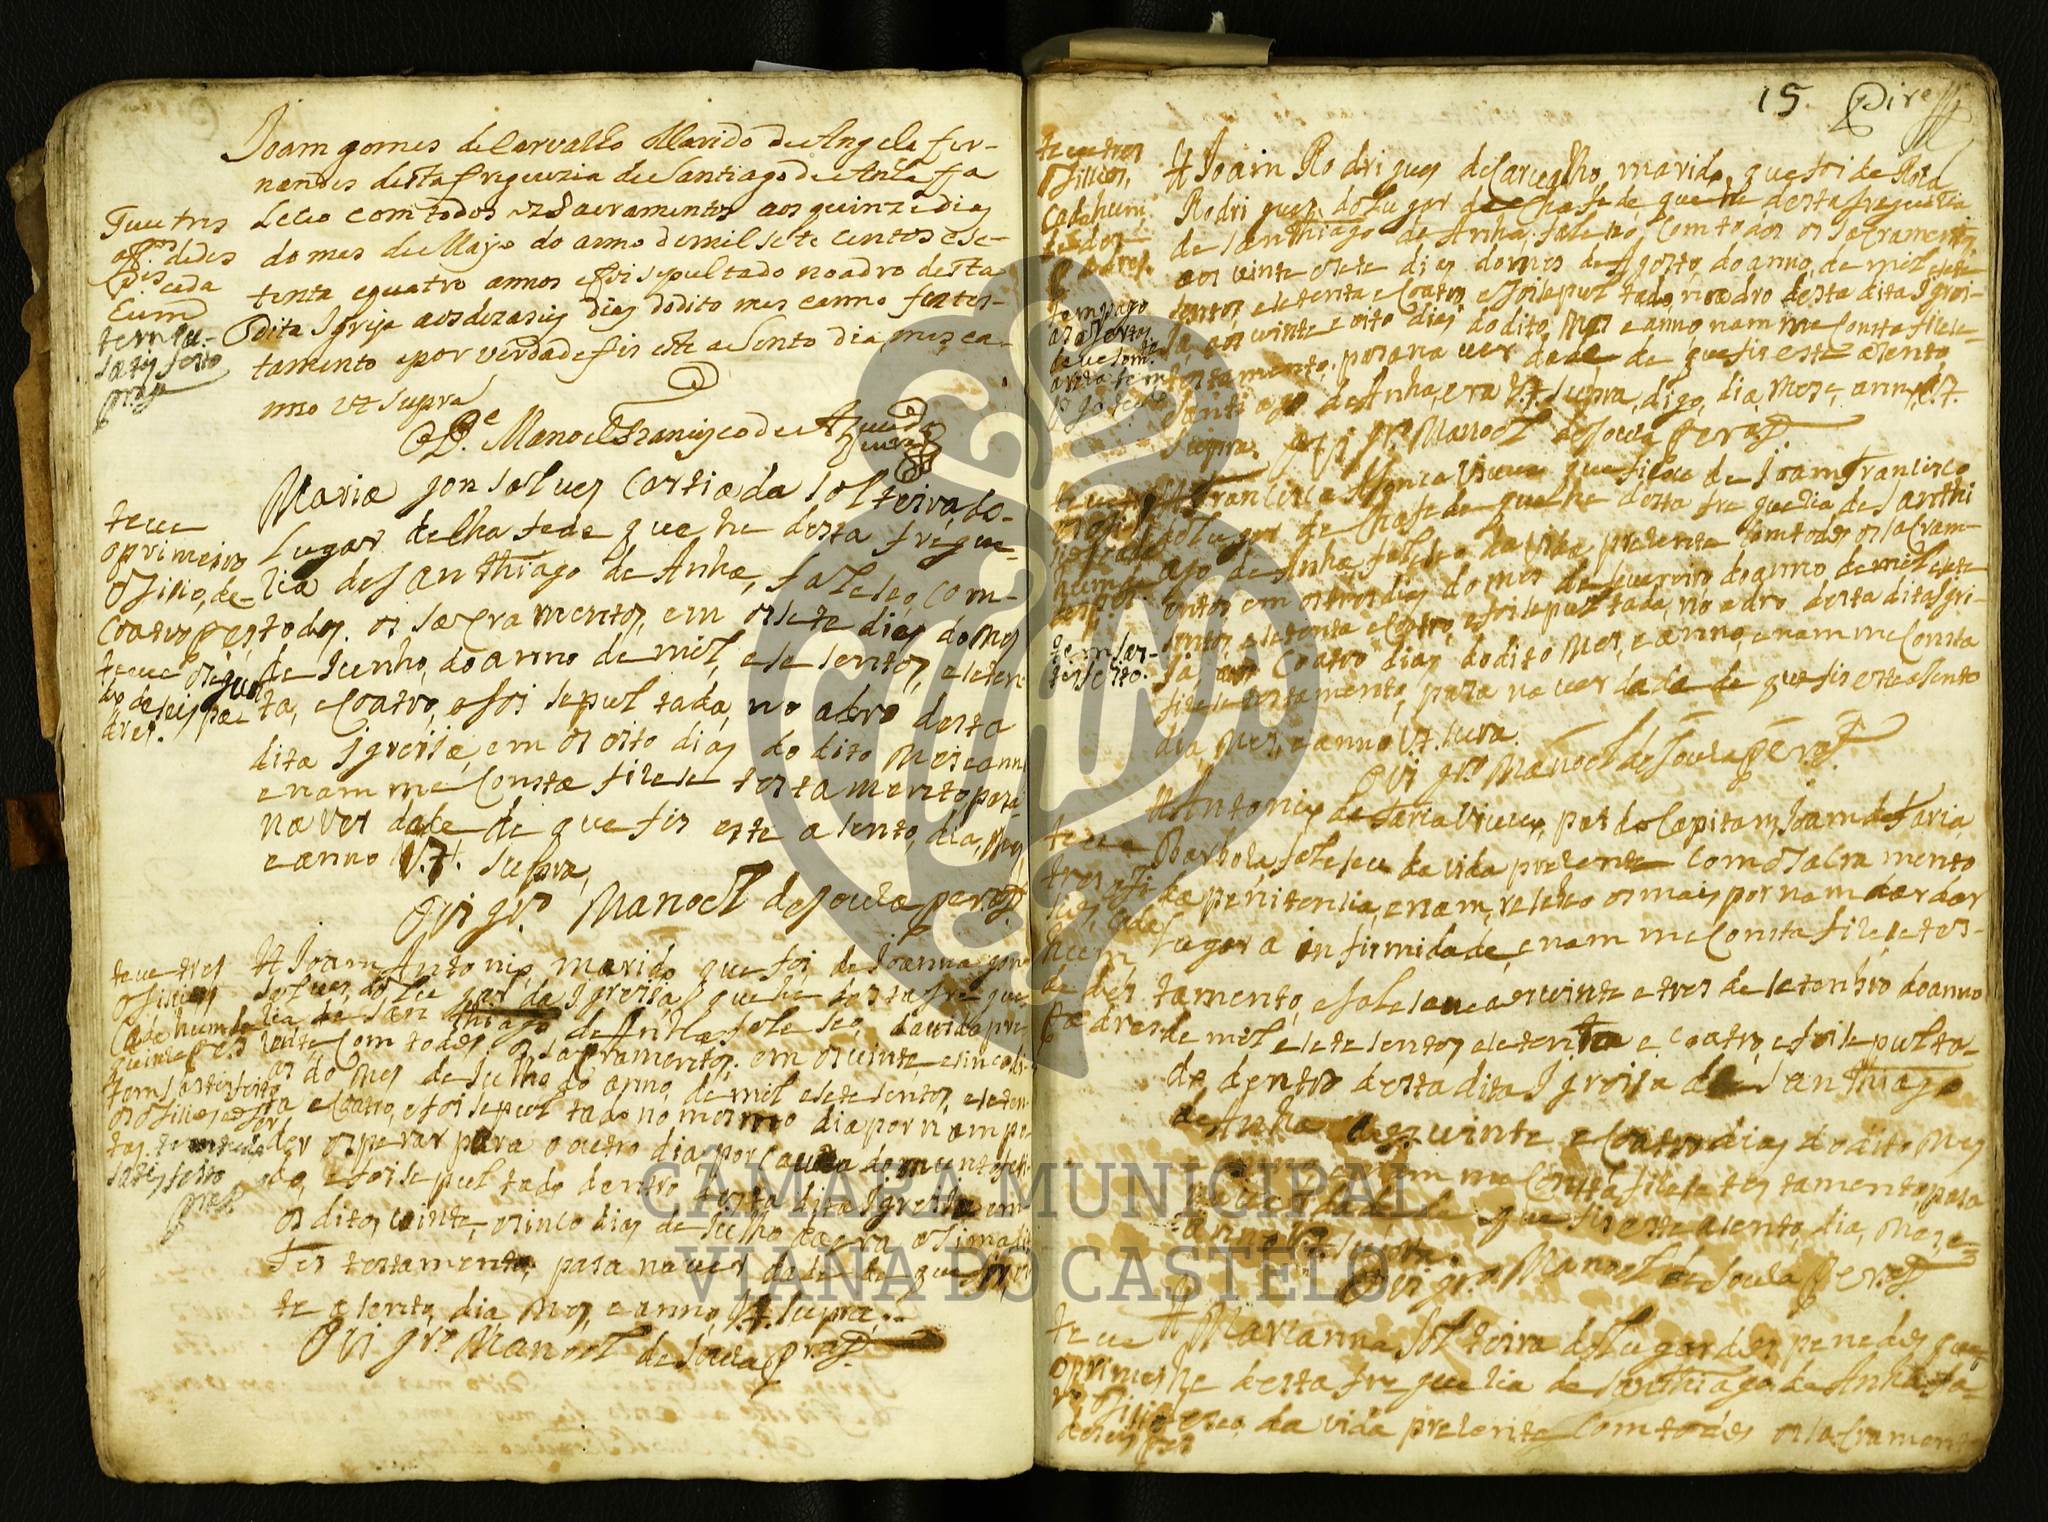 Joam gomes de Carvalho Marido de Angela fer-
nandes desta freguezia de Santiago de Anha ffa
Leceo com todos os Sacramentos aos quinze dias
do mes de Mayo do anno de mil sete centos e se-
tenta e quatro annos e foi sepultado no adro desta
dita Igreja aos dezaseis dias do dito mes e anno fes tes-
tamento e por verdade fis este asento dia, mes, e a-
nno ut supra
O Pe Manoel Francisco de Azevedo
Teue tres
de des
Pes cada
hum
tem sa-
tisfeito
Maria gonsalves Cortiada Solteira, do
Lugar de Chafe de que he desta fregue-
zia de Santhiago de Anha, faleseo, com
todos, os sacramentos, em os sete dias do Mes
de Junho, do anno de mil, e sete sentos, e seten-
ta, e Coatro, e foi sepultada, no adro desta
dita Igreija, em os oito dias do dito Mes e anno
e nam me Consta fizese testamento, para
na verdade de que fis este asento, dia, Mes
e anno V.t. supra,
O Vigro Manoel de Souza peras
teue
o primeiro
ofisio, de
Coatro pes
teue o segun
do de seis pa-
dres.
# Joam Antonio, marido, que foi de Joanna gon
salves, do Lugar da Igreija, que he desta fregue
zia de San thiago de Anha, faleseo, da vida pre
zente, Com todos os sacramentos, em os vinte e sinco di-
as do Mes de Julho do anno, de mil e sete sentos, e seten
ta e Coatro, e foi sepultado no mesmo dia por nam po-
der esperar para o outro dia, por Cauza do
do, e foi sepultado dentro desta dita Igreija em
os ditos vinte, e sinco dias de Julho
fes testamento, para na verdade de que fis es
te asento, dia, Mes, e anno, V.t. supra,
O Vigro Manoel de Souza peras
teue tres
ofisios
Cada hum de
quinze pes
tem satisfeito
os ofisios
satisfeito
15 Pires
# Joam Rodrigues de Carvalho, marido, que foi de Roza
Rodrigues, do Lugar de Chafe de que he desta freguezia
de Santhiago de Anha, faleseo, Com todos os sacramentos,
aos vinte e sete dias do mes de Agosto, do anno, de mil e sete
sentos e setenta e Coatro, e foi sepultado, no adro desta dita Igrei-
ja, aos vinte e oito dias do dito, Mes e anno, nam me Consta fizese
testamento, para na verdade de que fis este asento
Santiago de Anha, era V.t. supra, digo, dia, Mes e, anno, V.t.
supra. O Vigro Manoel de Souza peras.
teue tres
ofisios,
Cada hum
de des
padres.
# Francisca Afonca Viuva que ficou de Joam Francisco
do Lugar de Chafe de que he desta freguezia de Santhi
ago de Anha, faleseo da vida prezente Com todos os sacram-
entos, em os tres dias do mes de
sentos, e setenta e Coatro, e foi sepultada, no adro, desta dita Igrei-
ja, aos Coatro dias do dito Mes, e anno, e nam me Consta
fizese testamento, para na verdade de que fis este asento
dia, Mes, e anno V.t. supra.
O Vigro Manoel de Souza peras.
tem sa-
tisfeito.
# Antonio de Faria Viuvo, pai do Capitam, Joam de Faria
Barboza, faleseu da vida prezente Com o sacramento
da penitensia, e nam, resebeo os mais por nam dar
Lugar a infirmidade, e nam me Consta fizese tes-
tamento, e faleseo aos vinte e tres de setenbro do anno
de mil e sete sentos e setenta e Coatro, e foi sepulta-
do dentro desta dita Igreija de Santhiago
de Anha aos vinte e Coatro dias do dito Mes
e nam me Consta, fizese testamento, para
na verdade de que fis este asento, dia, Mes, e
anno V.t. supra.
O Vigro Manoel de Souza peras.
teue
tres ofi
sios, Cada
hum
de des
padres.
# Marianna Solteira do Lugar dos penedos que
he desta freguezia de Santhiago de Anha, fa-
leseo, da vida prezente Com todos os sacramentos
teue
o primei
ro ofisio
de seis pes
CÂMARA MUNICIPAL
VIANA DO CASTELO